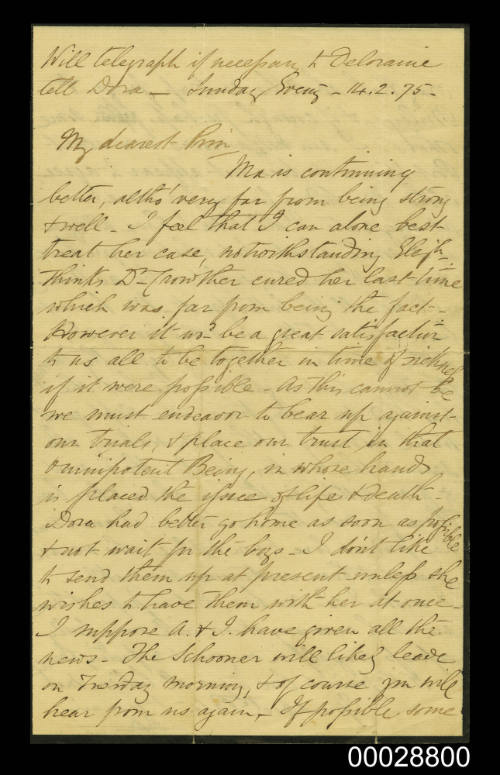 Will telegraph if necessary to Deloraine
tell Dora — Sunday Eveng - 14.2.75-
My dearest Prin
Ma is continuing
better, altho' very far from being strong
& well - I feel that I can alone best
treat her case, notwithstanding Elizth
thinks Dr Crowther cured her last time
which was far from being the fact -
However it wd be a great satisfaction
to us all to be together in time of sickness
if it were possible - As this cannot be
we must endeavor to bear up against
our trials, & place our trust in that
Omnipotent Being, in whose hands
is placed the issue of life & death -
Dora had better go home as soon as possible
& not wait for the boys - I don't like
to send them up at present unless she
wishes to have them with her at once -
I suppose A. & I. have given all the
news - The Schooner will likely leave
on Tuesday morning, & of course you will
hear from us again - If possible some
00028800